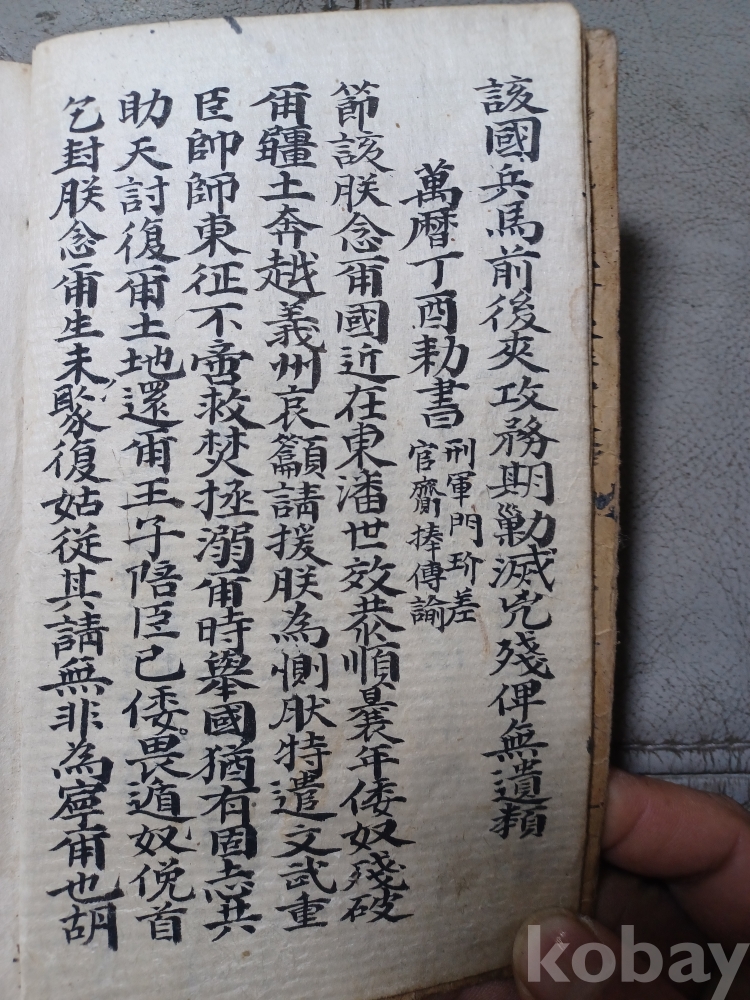 該國兵馬前後夾攻務期勦滅兇殘俾無遺類
萬曆丁酉勑書
刑軍門玠差
官齎捧傳諭
節該朕念爾國近在東藩世效恭順曩年倭奴殘破
爾疆土奔越義州哀籲請援朕為惻肰特遣文武重
臣帥師東征不啻救焚拯溺爾時舉國猶有固志共
助天討復爾土地還爾王子陪臣已倭畏遁奴俛首
乞封朕念爾生未聚復姑從其請無非為寧爾也胡
kobay